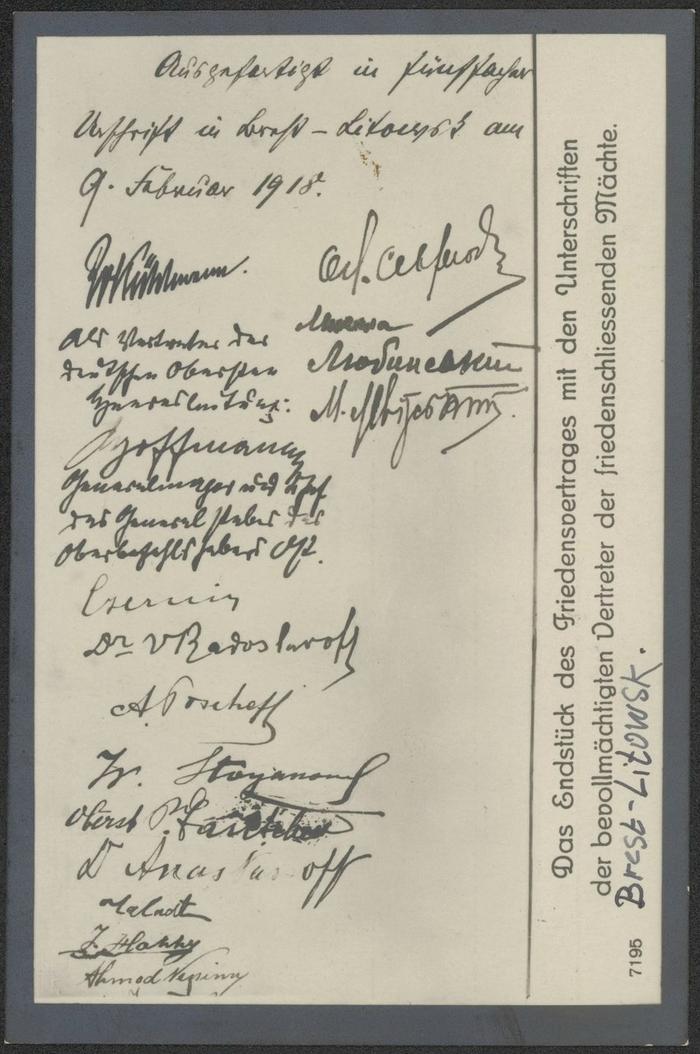 Ausgefertigt in fünffacher
Urschrift in Brest-Litowsk am
9. Februar 1918.
Kühlmann.
Als Vertreter der
deutschen Obersten
Heeresleitung:
Hoffmann
Generalmajor und Chef
des Generalstabes des
Oberbefehlshabers Ost.
Czernin
Dr V Radoslavoff
A. Toscheff
Iv. Stoyanovitch
Oberst P.
Dr Anastasoff
I. Hakky
Ahmed Nessimy
Ол.
Любинський
М.
Das Endstück des Friedensvertrages mit den Unterschriften
der bevollmächtigten Vertreter der friedenschliessenden Mächte.
Brest-Litowsk.
7195